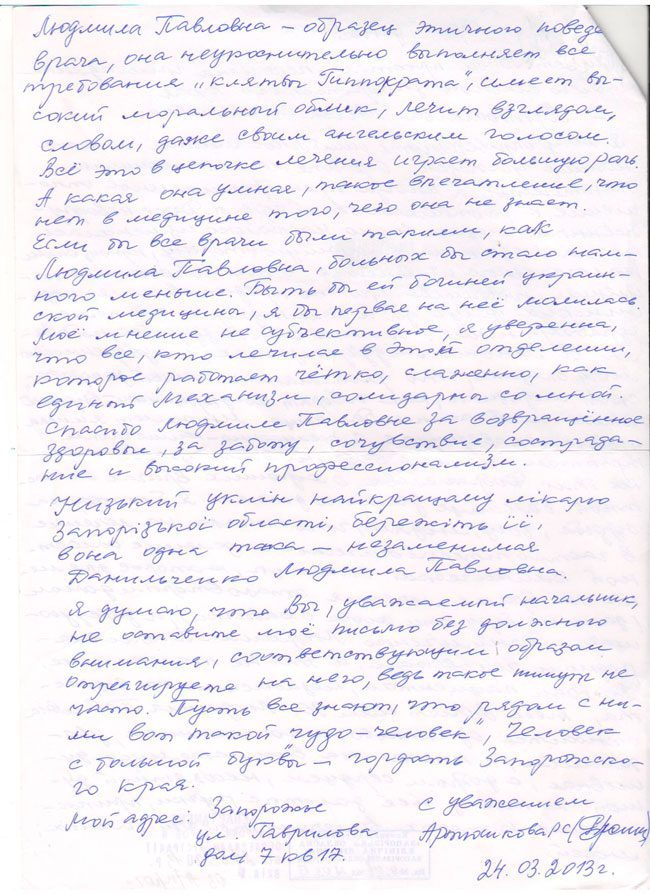 Людмила Павловна – образец этичного поведе
врача, она неукоснительно выполняет все
требования „клятвы Гиппократа", имеет вы-
сокий моральный облик, лечит взглядом,
словом, даже своим ангельским голосом.
Всё это в цепочке лечения играет большую роль.
А какая она умная, такое впечатление, что
нет в медицине того, чего она не знает.
Если бы все врачи были такими, как
Людмила Павловна, больных бы стало нам-
ного меньше. Быть бы ей богиней украин-
ской медицины, я бы первая на неё молилась.
Моё мнение не субъективное, я уверенна,
что все, кто лечился в этом отделении,
которое работает чётко, слаженно, как
единый механизм, солидарны со мной.
Спасибо Людмиле Павловне за возвращённое
здоровье, за заботу, сочувствие, сострада-
ние и высокий профессионализм.
Низький уклін найкращому лікарю
Запорізької області, бережіть її,
вона одна така – незаменимая
Данильченко Людмила Павловна.
Я думаю, что Вы, уважаемый начальник,
не оставите моё письмо без должного
внимания, соответствующим образом
отреагируете на него, ведь такое пишут не
часто. Пусть все знают, что рядом с ни-
ми вот такой „чудо-человек", Человек
с большой буквы – гордость Запорожско-
го края.
Мой адрес: Запорожье
ул. Гаврилова
дом 7 кв 17.
с уважением
Артюшкова РС
24.03.2013г.